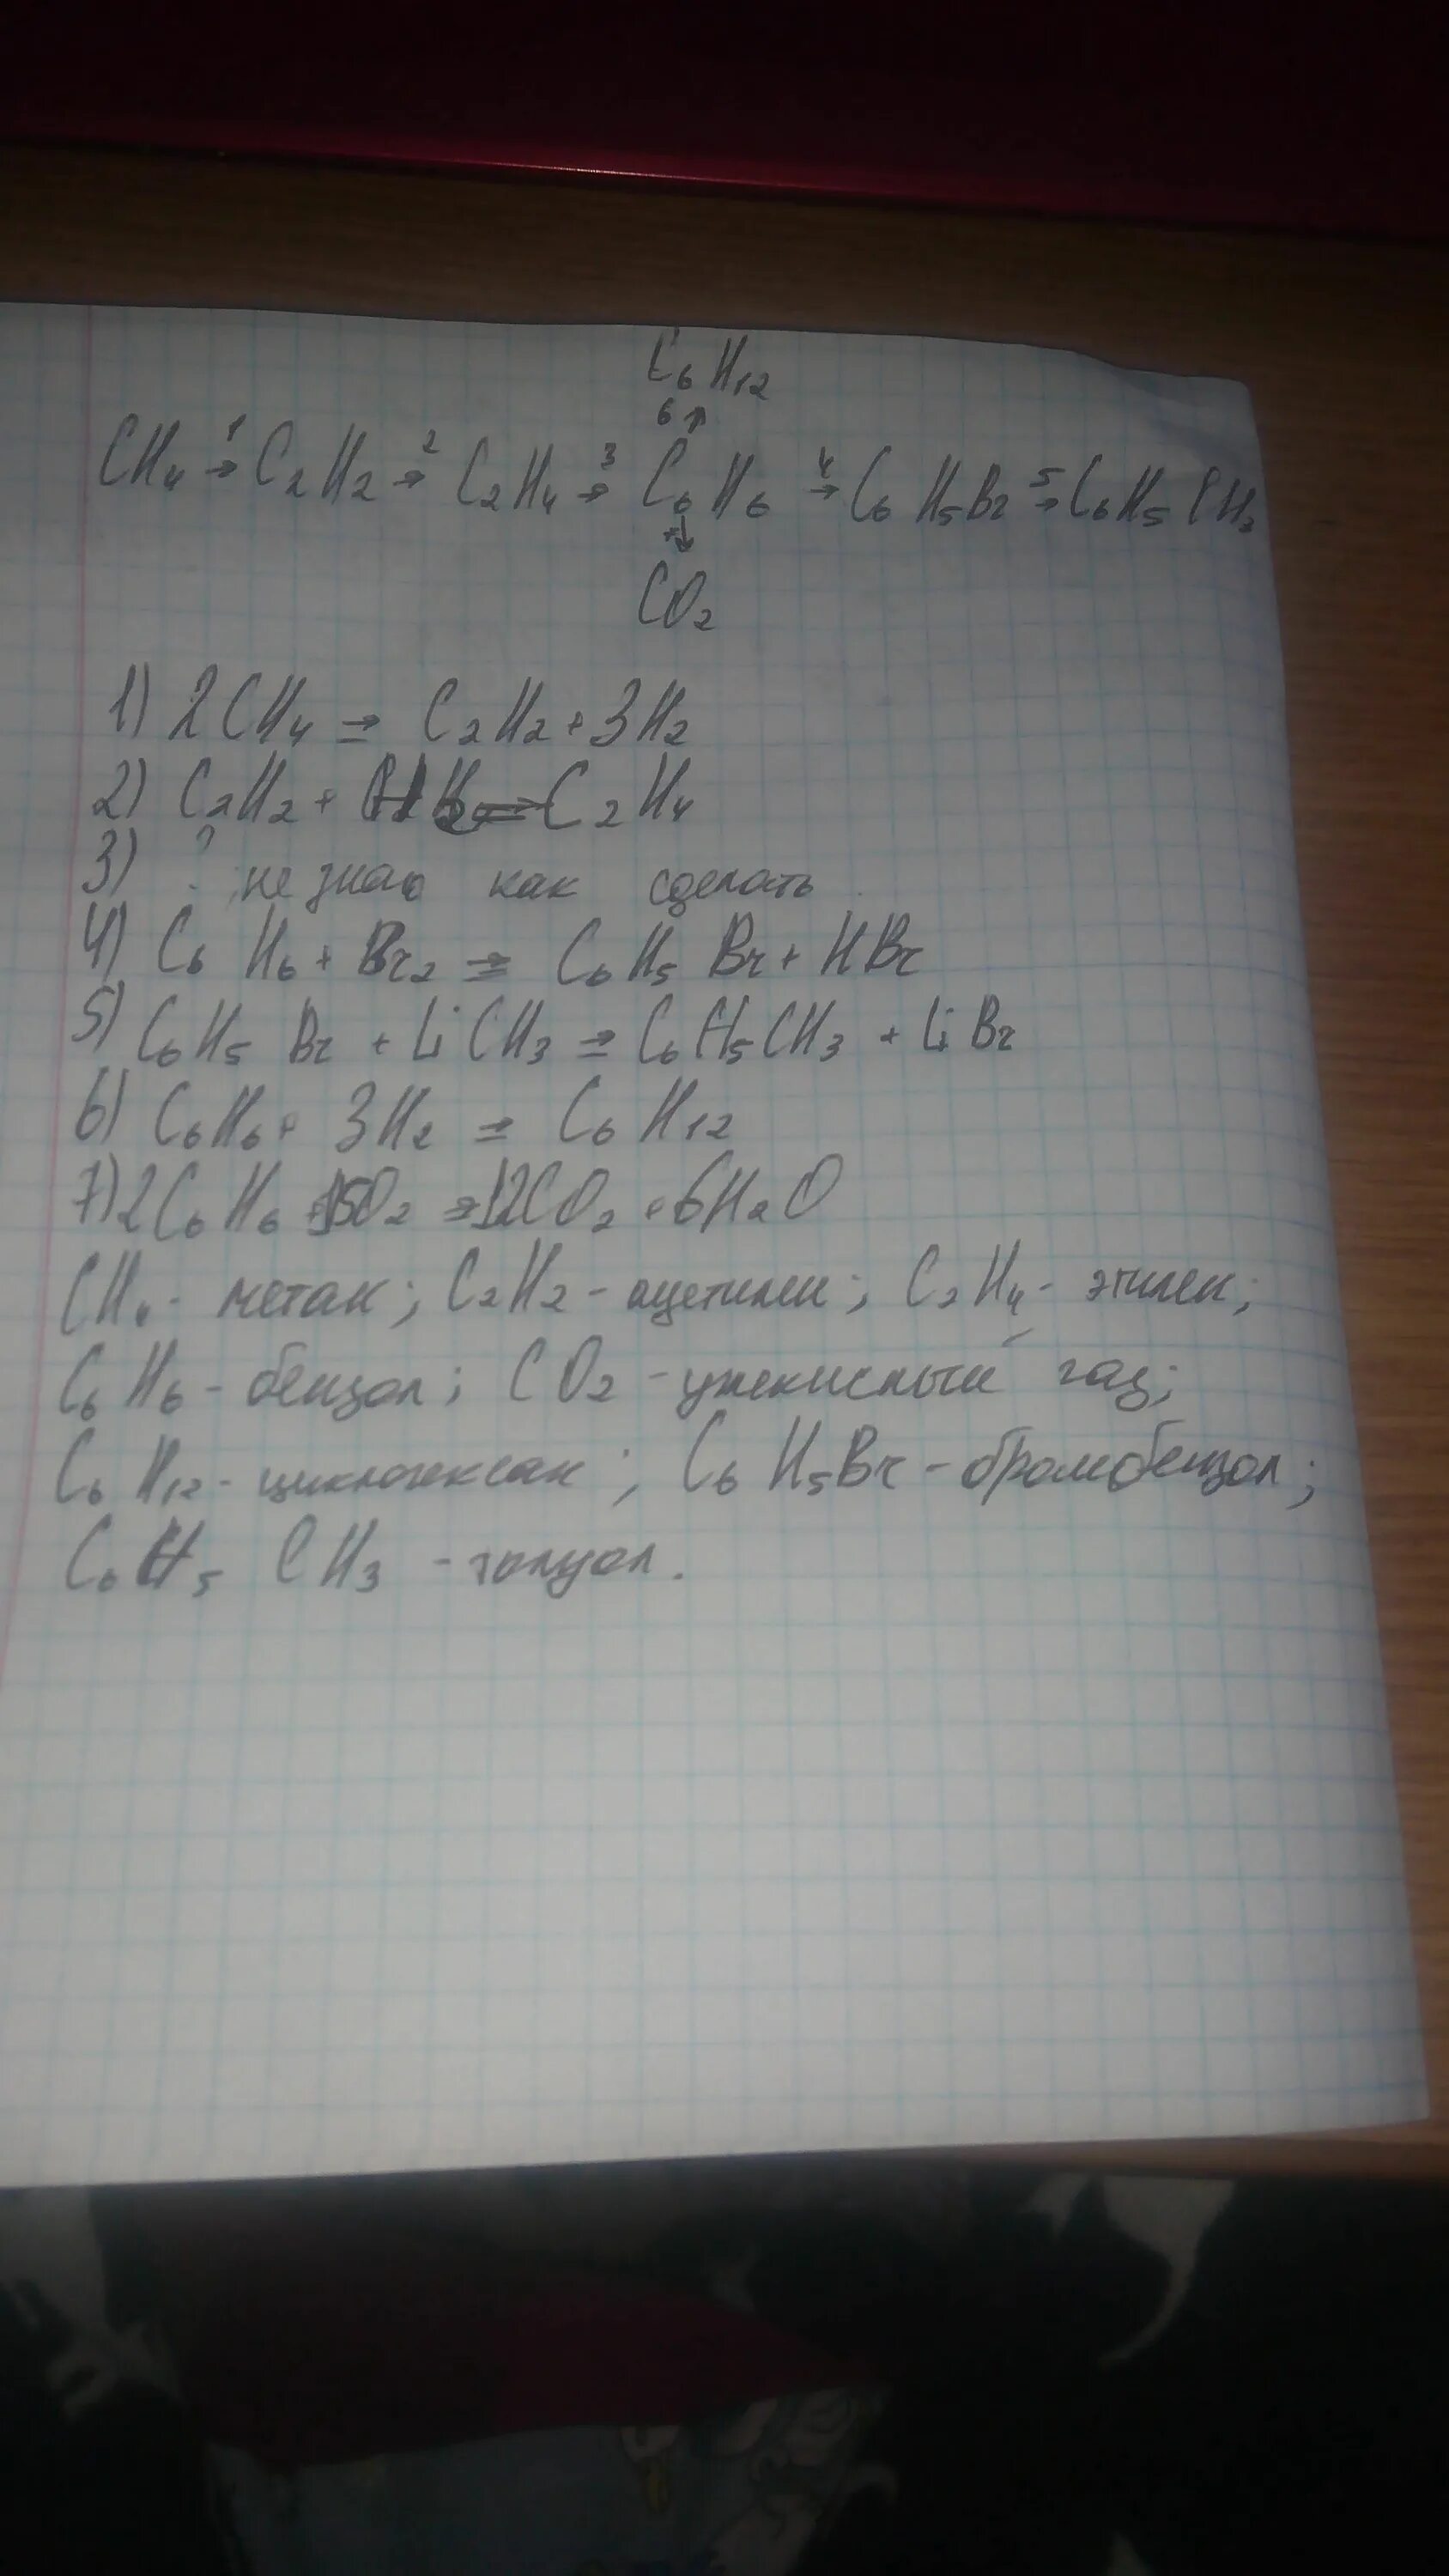 C₆H₁₂
6↑
CH₄ →¹ C₂H₂ →² C₂H₄ →³ C₆H₆ →⁴ C₆H₅Br →⁵ C₆H₅CH₃
↓
CO₂
1) 2CH₄ → C₂H₂ + 3H₂
2) C₂H₂ + H₂ → C₂H₄
3) ? не знаю как сделать
4) C₆H₆ + Br₂ → C₆H₅Br + HBr
5) C₆H₅Br + LiCH₃ → C₆H₅CH₃ + LiBr
6) C₆H₆ + 3H₂ → C₆H₁₂
7) 2C₆H₆ + 15O₂ → 12CO₂ + 6H₂O
CH₄ - метан; C₂H₂ - ацетилен; C₂H₄ - этилен;
C₆H₆ - бензол; CO₂ - углекислый газ;
C₆H₁₂ - циклогексан; C₆H₅Br - бромбензол;
C₆H₅CH₃ - толуол.